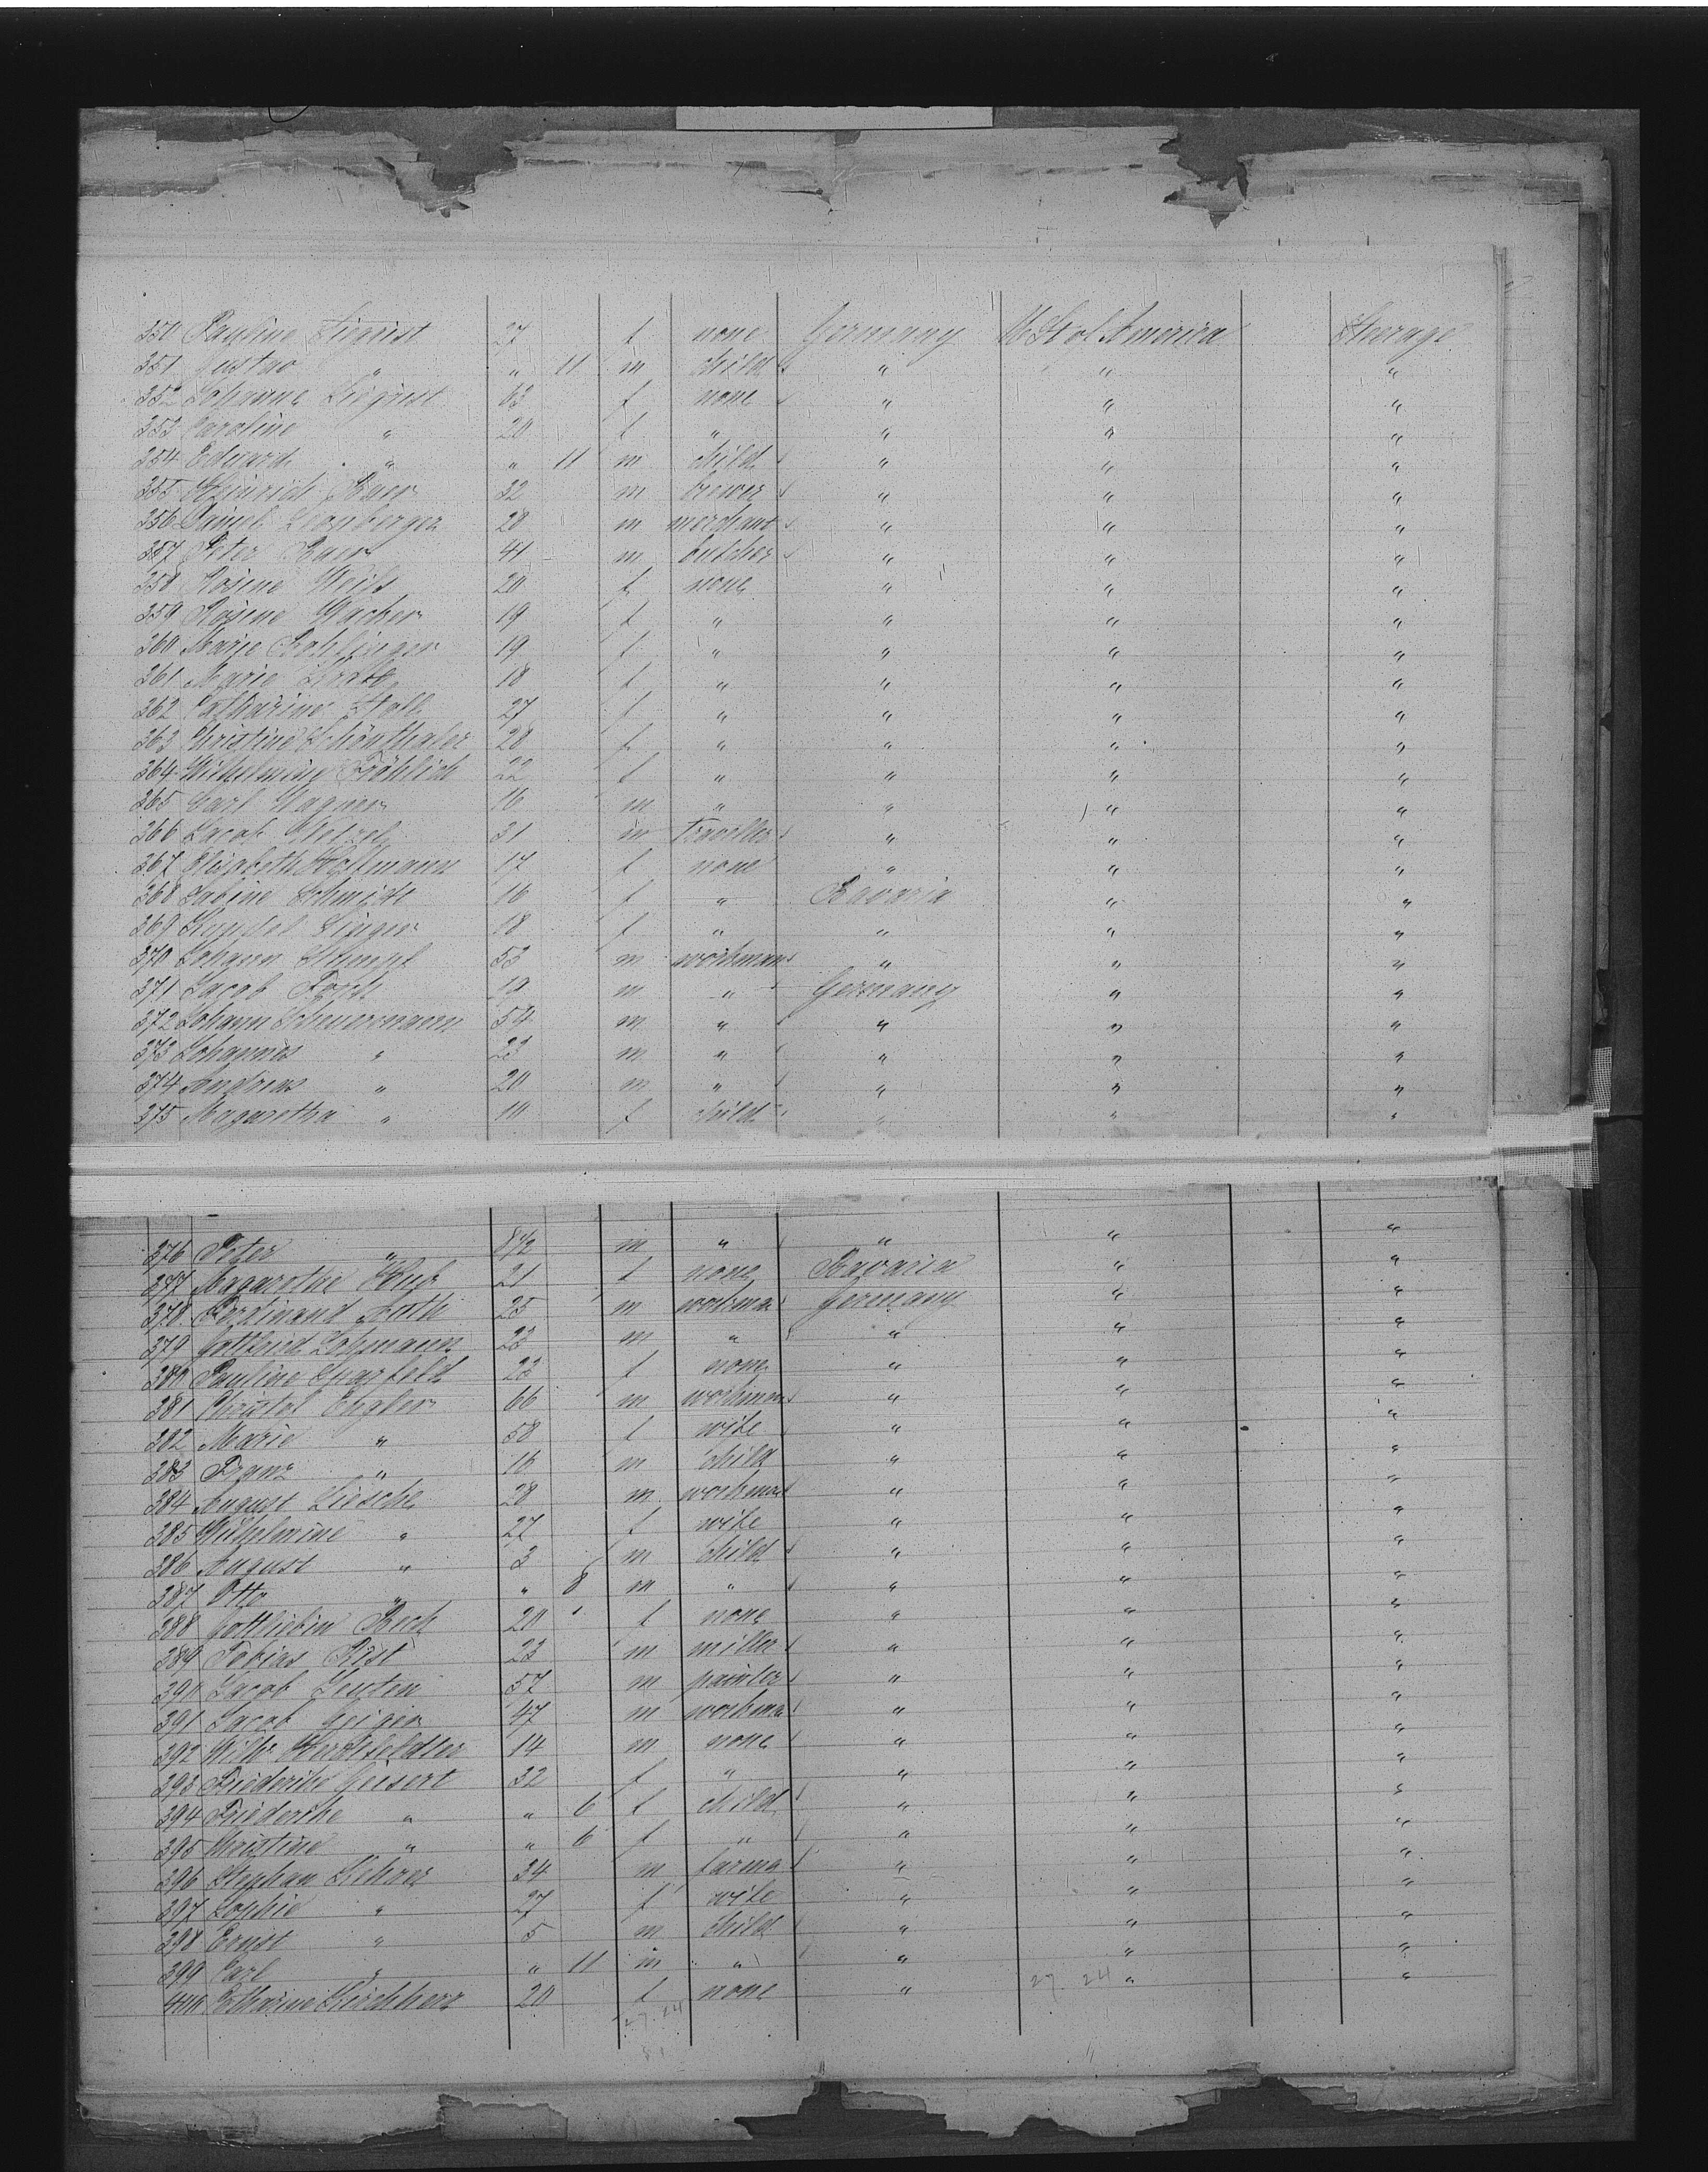 350 Pauline Siegrist 27 f none Germany U St of America Steerage
351 Gustav " " 11 m child " " "
352 Johanne Siegrist 63 f none " " "
353 Caroline " 20 f " " " "
354 Eduard " " 11 m child " " "
355 Heinrich Baer 32 m brewer " " "
356 Daniel Leonberger 28 m merchant " " "
357 Peter Baer 41 m butcher " " "
358 Rosine Weiss 20 f none " " "
359 Rosine Wacker 19 f " " " "
360 Marie 19 f " " " "
361 Marie 18 f " " " "
362 Catharine Stoll 27 f " " " "
363 Christine Schönthaler 28 f " " " "
364 Wilhelmine Fröhlich 22 f " " " "
365 Carl Wagner 16 m " " " "
366 Jacob Wetzel 31 m traveller " " "
367 Elisabeth Hoffmann 17 f none " " "
368 Sabine Schmidt 16 f " Bavaria " "
369 Singer 18 f " " " "
370 Johann Stumpf 53 m workman " " "
371 Jacob 19 m " Germany " "
372 Johann Scheuermann 54 m " " " "
373 Johannes " 23 m " " " "
374 Andreas " 20 m " " " "
375 Magaretha " 10 f child " " "
376 Peter " 8 1/2 m " " " "
377 Magarethe 21 f none Bavaria " "
378 Ferdinand Roth 25 m workman Germany " "
379 Gottfried Lohmann 23 m " " " "
380 Pauline Sparfeld 23 f none " " "
381 Christof Engler 66 m workman " " "
382 Marie " 58 f wife " " "
383 Franz " 16 m child " " "
384 August Liesche 28 m workman " " "
385 Wilhelmine " 27 f wife " " "
386 August " 3 m child " " "
387 Otto " " 8 m " " " "
388 Gottliebin Beck 20 f none " " "
389 Tobias Rist 23 m miller " " "
390 Jacob 57 m painter " " "
391 Jacob Geiger 47 m workma " " "
392 Wilh. 14 m none " " "
393 Friederike Geisert 32 f " " " "
394 Friederike " " 6 f child " " "
395 Christine " " 6 f " " " "
396 Stephan 34 m farmer " " "
397 Sophie " 27 f wife " " "
398 Ernst " 5 m child " " "
399 Carl " " 11 m " " " "
400 Catharine Kirchherr 20 f none " 27 24 " "
27. 24